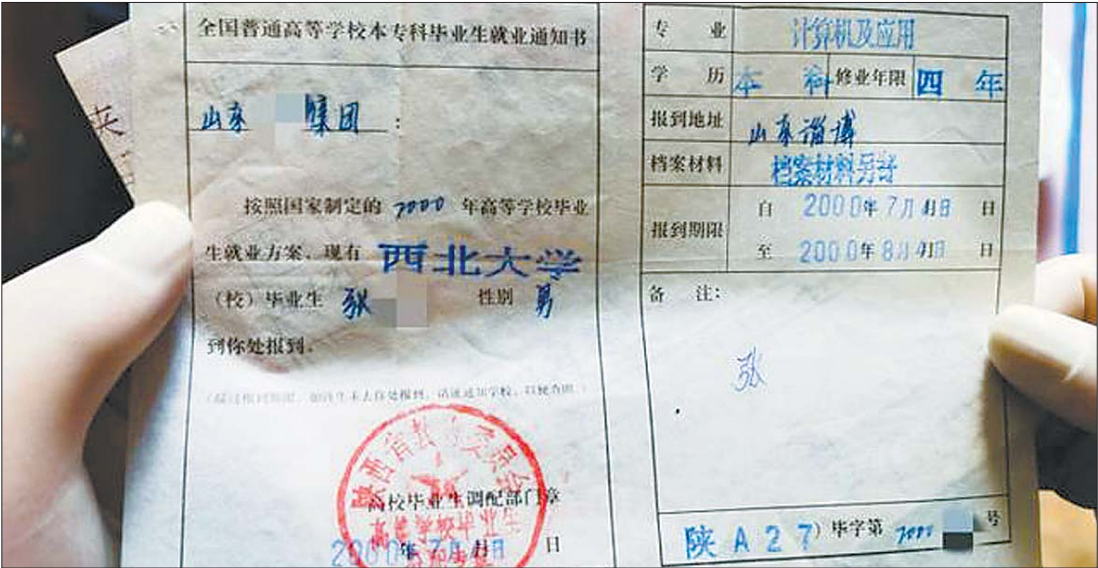 全国普通高等学校本专科毕业生就业通知书
山东 集团 :
按照国家制定的 2000 年高等学校毕业
生就业方案、现有 西北大学
(校) 毕业生 张 性别 男
到你处报到。
高校毕业生调配部门章
2000年7月 日 日
专业 计算机及应用
学历 本科 修业年限 四年
报到地址 山东淄博
档案材料 档案材料另寄
报到期限
自 2000年7月 日 日
至 2000年8月 日 日
备 注:
张
陕A27) 毕字第 2000 号
陕西省教育委员会
夹